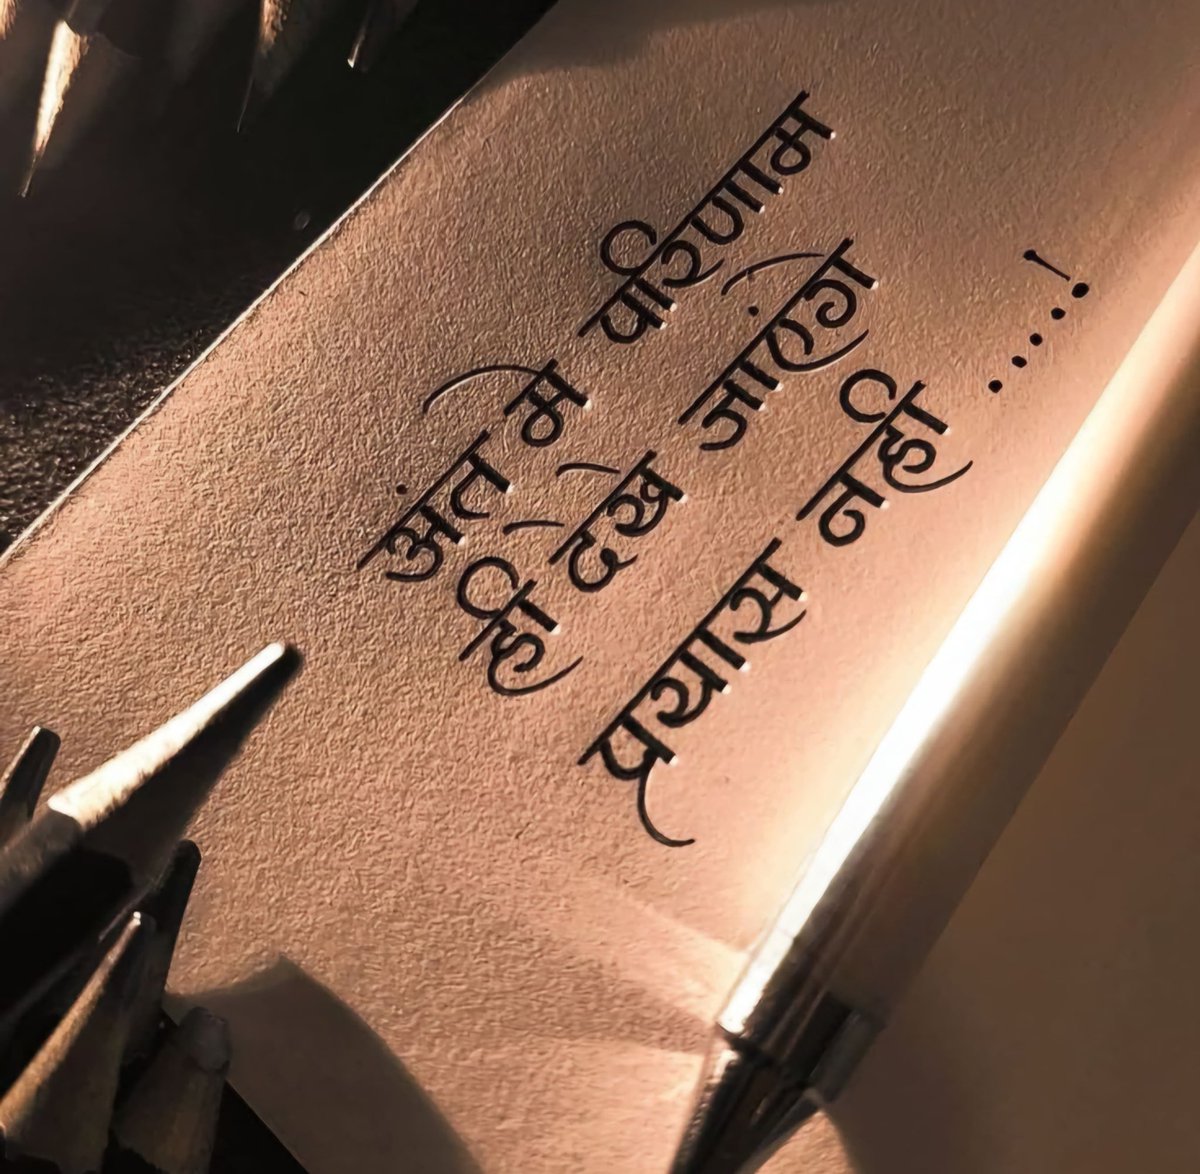 अंत में परिणाम
ही देखे जाएंगे
प्रयास नहीं .....!